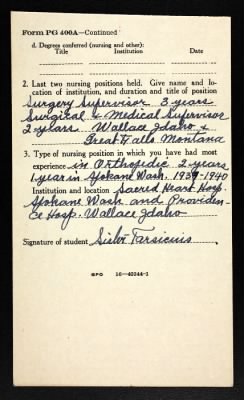 Form PG 400A—Continued
d. Degrees conferred (nursing and other):
Title Institution Date
2. Last two nursing positions held. Give name and lo-
cation of institution, and duration and title of position
Surgery Supervisor 3 years
Surgical & Medical Supervisor
2 years. Wallace Idaho &
Great Falls Montana
3. Type of nursing position in which you have had most
experience in Orthopedic 2 years
1 year in Spokane Wash. 1939-1940
Institution and location Sacred Heart Hosp.
Spokane Wash and Providen-
ce Hosp. Wallace Idaho
Signature of student Sister Tarsicius
GPO 16—40244-1